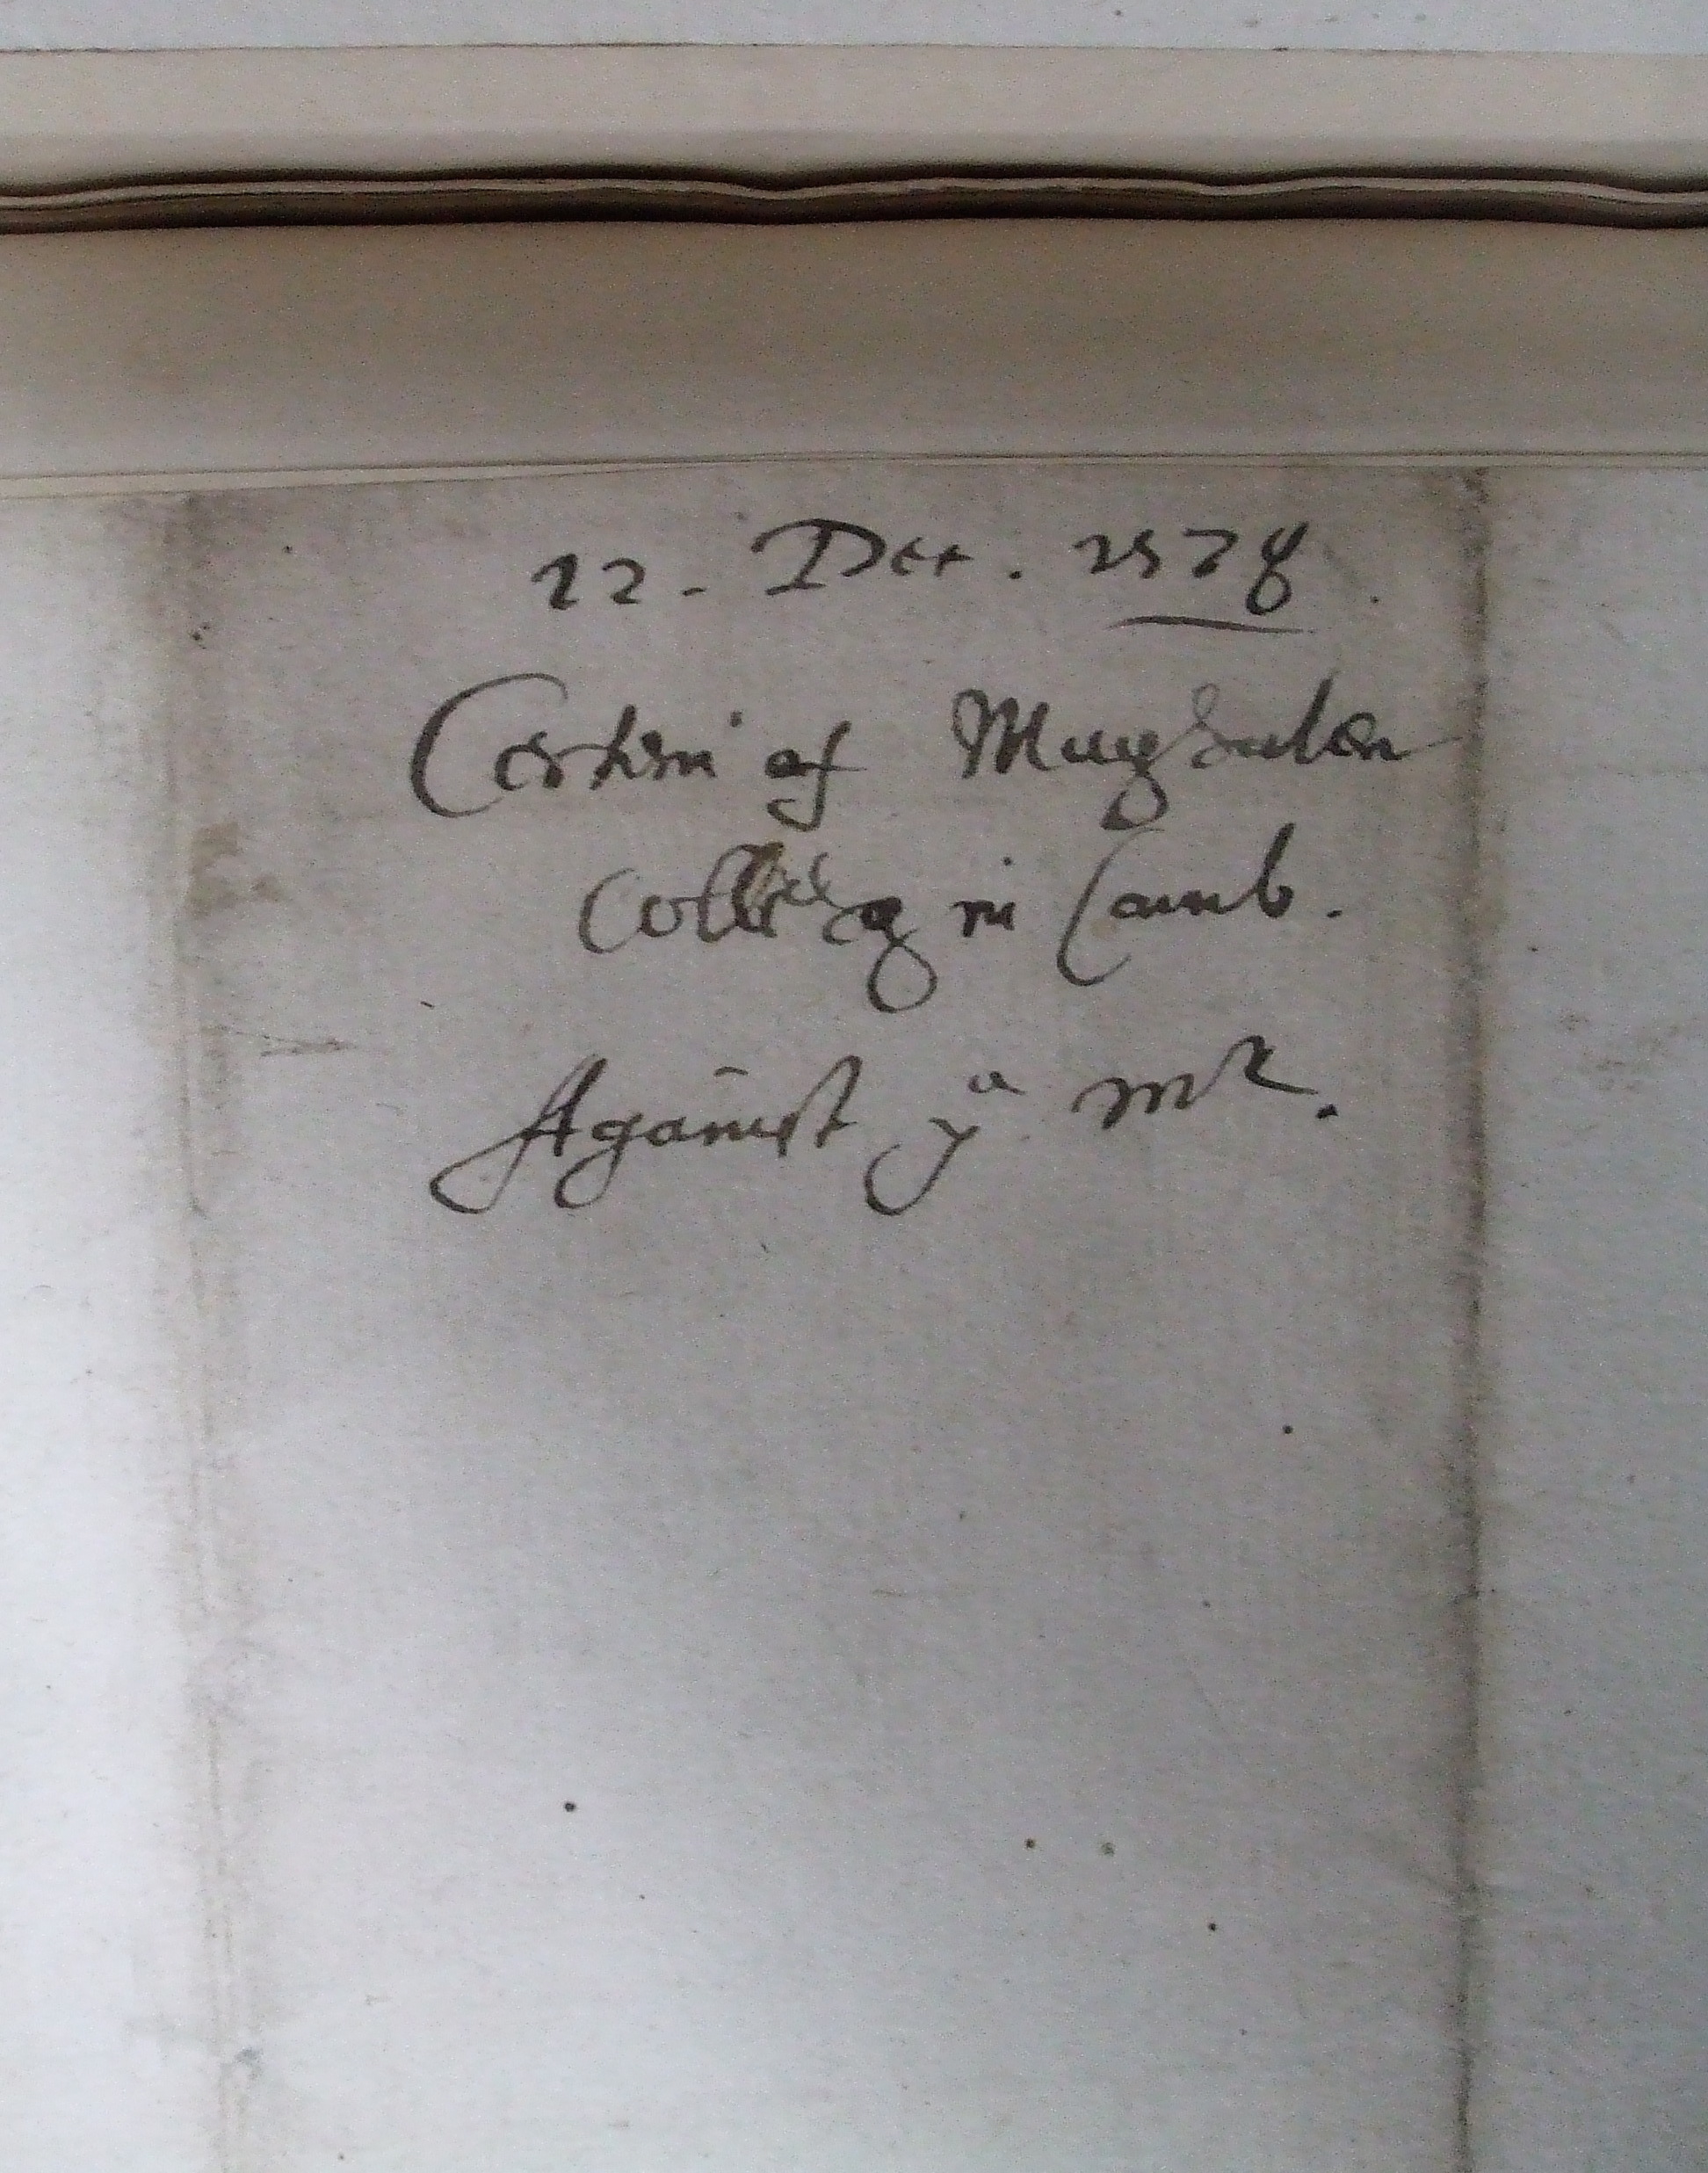 12. Dec. 1578.
Certein of Magdalen
Colledg in Camb.
Against yᵉ Mʳ.